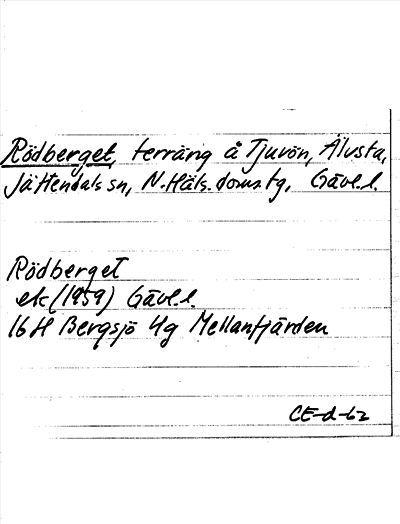 Rödberget, terräng å Tjuvön, Älvsta,
Jättendals sn, N. Häls. doms.tg. Gävl.l.
Rödberget
ek (1959) Gävl.l.
16H Bergsjö 4g Mellanfjärden
CE-d-62